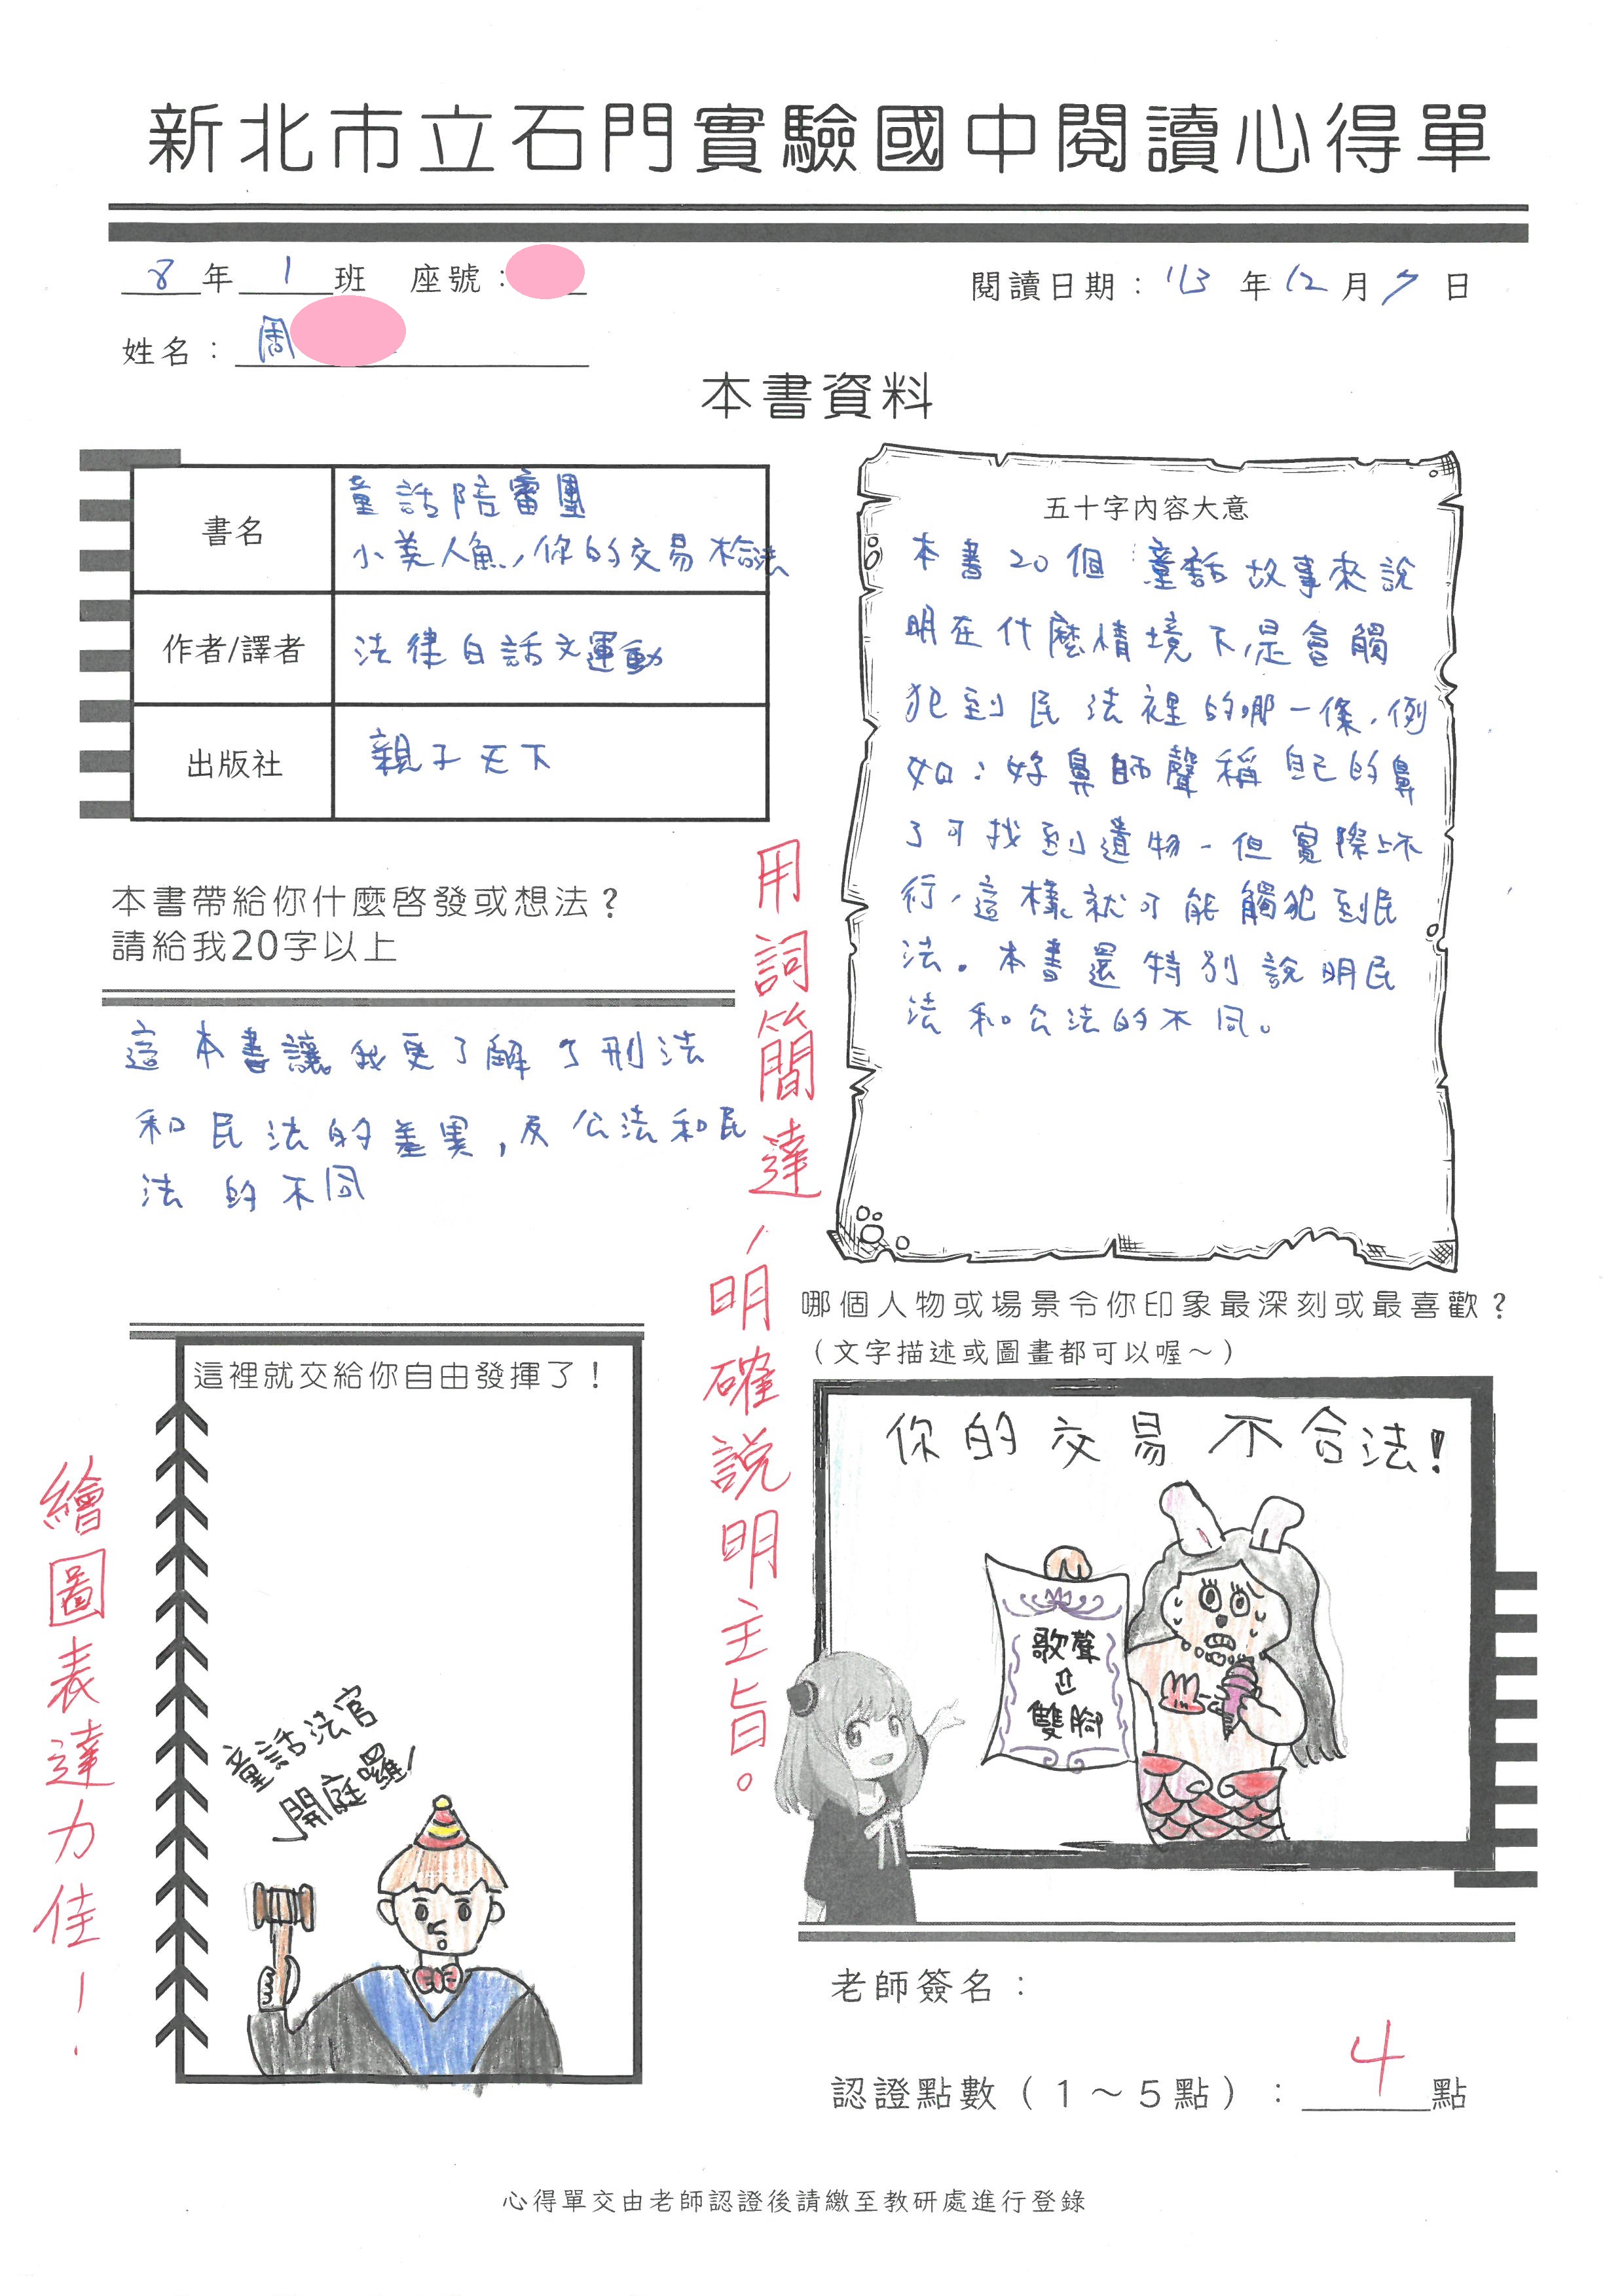 新北市立石門實驗國中閱讀心得單
8年1班 座號：
閱讀日期：113年12月7日
姓名：周
本書資料
書名
童話陪審團
小美人魚，你的交易不合法
作者/譯者
法律白話文運動
出版社
親子天下
五十字內容大意
本書20個童話故事來說
明在什麼情境下,是會觸
犯到民法裡的哪一條，例
如：好鼻師聲稱自己的鼻
子可找到遺物，但實際上不
行，這樣就可能觸犯到民
法。本書還特別說明民
法和公法的不同。
本書帶給你什麼啓發或想法？
請給我20字以上
這本書讓我更了解了刑法
和民法的差異，及公法和民
法的不同
用詞簡達，
明確說明主旨。
哪個人物或場景令你印象最深刻或最喜歡？
（文字描述或圖畫都可以喔～）
你的交易不合法！
歌聲
⇩
雙腳
這裡就交給你自由發揮了！
童話法官
開庭囉！
繪圖表達力佳！
老師簽名：
認證點數（1～5點）：4點
心得單交由老師認證後請繳至教研處進行登錄